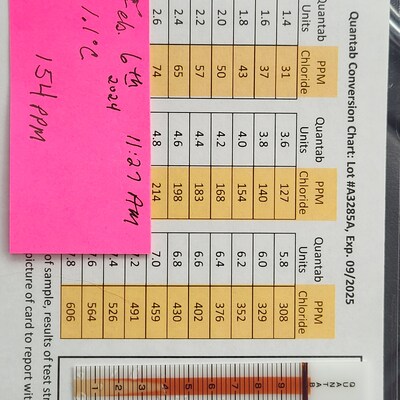 Quantab Conversion Chart: Lot #A3285A, Exp. 09/2025
Quantab Units PPM Chloride Quantab Units PPM Chloride Quantab Units PPM Chloride
1.4 31 3.6 127 5.8 308
1.6 37 3.8 140 6.0 329
1.8 43 4.0 154 6.2 352
2.0 50 4.2 168 6.4 376
2.2 57 4.4 183 6.6 402
2.4 65 4.6 198 6.8 430
2.6 74 4.8 214 7.0 459
.2 491
.4 526
.6 564
.8 606
Feb. 6th 2024 11:27 AM
1.1°C
154 PPM
of sample, results of test str
picture of card to report with
QUANTAB
9
8
7
6
5
4
3
2
1